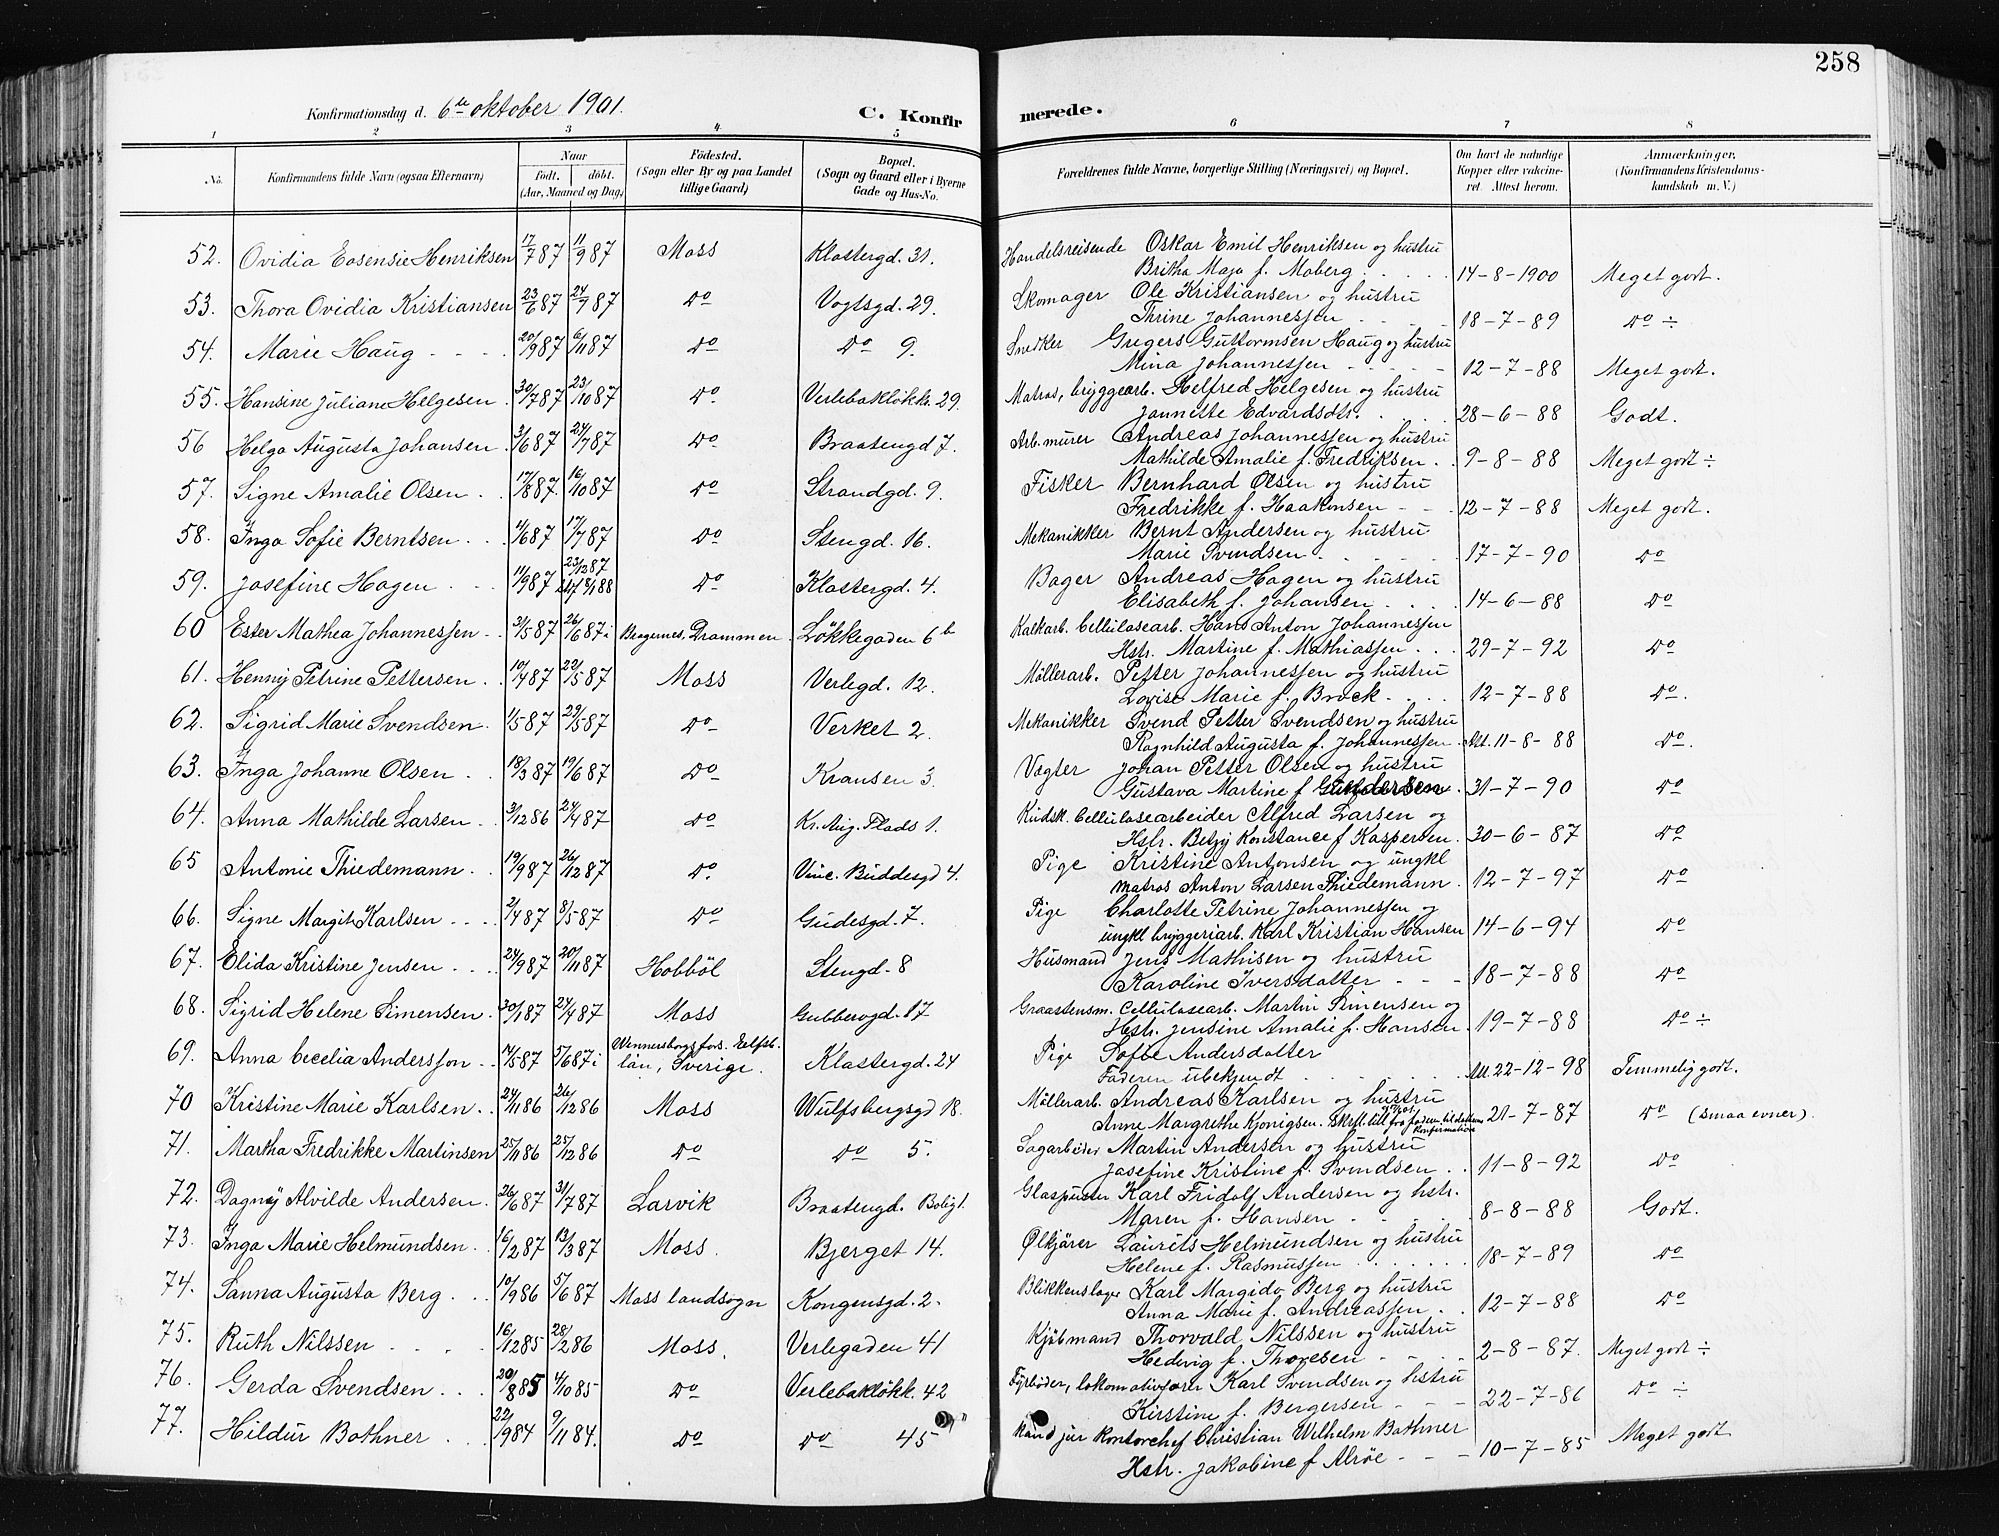 258
Konfirmationsdag d. 6te oktober 1901. C. Konfirmerede.
1 2 3 4 5 6 7 8
No. Konfirmandens fulde Navn (ogsaa Efternavn) Naar født. døbt. (Aar, Maaned og Dag) Fødested. (Sogn eller By og paa Landet tillige Gaard) Bopæl. (Sogn og Gaard eller i Byerne Gade og Hus-No. Forældrenes fulde Navne, borgerlige Stilling (Næringsvei) og Bopæl. Om havt de naturlige Kopper eller vakcineret. Attest herom. Anmærkninger. (Konfirmandens Kristendomskundskab m. V.)
52. Ovidia Eosensie Henriksen 17/7 87 11/9 87 Moss Klostergd. 31. Handelsreisende Oskar Emil Henriksen og hustru
Britha Maja f. Moberg 14-8-1900 Meget godt.
53. Thora Ovidia Kristiansen 23/6 87 24/7 87 Do Vogtsgd. 29. Skomager Ole Kristiansen og hustru
Thrine Johannessen 18-7-89 Do ÷
54. Marie Haug 20/9 87 6/11 87 Do Do 9. Snedker Gregers Guttormsen Haug og hustru
Mina Johannessen 12-7-88 Meget godt.
55. Hansine Juliane Helgesen 30/7 87 23/10 87 Do Verlebakløkk. 29. Matros, bryggearb. Helfred Helgesen og hustru
Jannette Edvardsdtr. 28-6-88 Godt.
56 Helga Augusta Johansen 3/6 87 24/7 87 Do Braatengd 7. Arb. murer Andreas Johannessen og hustru
Mathilde Amalie f. Fredriksen 9-8-88 Meget godt ÷
57. Signe Amalie Olsen 17/8 87 16/10 87 Do Strandgd. 9. Fisker Bernhard Olsen og hustru
Fredrikke f. Haakonsen 12-7-88 Meget godt.
58. Inga Sofie Berntsen 11/6 87 17/7 87 Do Stengd. 16. Mekanikker Bernt Andersen og hustru
Marie Svendsen 17-7-90 Do
59. Josefine Hagen 11/9 87 23/12 87 8/1 88 Do Klostergd. 4. Bager Andreas Hagen og hustru
Elisabeth f. Johansen 14-6-88 Do
60 Ester Mathea Johannessen 31/5 87 26/6 87 i Bragernes, Drammen Løkkegaden 6b Kalkarb. Cellulosearb. Hans Anton Johannessen
Hstr. Martine f. Mathiassen 29-7-92 Do
61. Henny Petrine Pettersen 10/4 87 22/5 87 Moss Verlegd. 12. Møllerarb. Petter Johannessen og hustru
Lovise Marie f. Brock 12-7-88 Do.
62. Sigrid Marie Svendsen 1/5 87 29/5 87 Do Verket 2. Mekanikker Svend Petter Svendsen og hustru
Ragnhild Augusta f. Johannessen Att. 11-8-88 Do.
63. Inga Johanne Olsen 18/3 87 19/6 87 Do Kransen 3. Vægter Johan Petter Olsen og hustru
Gustava Martine f Gundersen 31-7-90 Do
64. Anna Mathilde Larsen 3/12 86 24/4 87 Do Kr. Aug. Plads 1. Kudsk. Cellulosearbeider Alfred Larsen og
Hstr. Betzy Konstance f Kaspersen 30-6-87 Do
65 Antonie Thiedemann 19/9 87 26/12 87 Do. Vinc. Buddesgd 4. Pige Kristine Antonsen og ungkl
matros Anton Larsen Thiedemann 12-7-97 Do
66. Signe Margith Karlsen 2/4 87 8/5 87 Do Gudesgd. 7. Pige Charlotte Petrine Johannessen og
ungkl bryggeriarb. Karl Kristian Hansen 14-6-94 Do
67. Elida Kristine Jensen 24/9 87 20/11 87 Hobböl Stengd. 8 Husmand Jens Mathisen og hustru
Karoline Iversdatter 18-7-88 Do
68. Sigrid Helene Simensen 30/1 87 24/4 87 Moss Gubberogd. 17 Graastensm. Cellulosearb. Martin Simensen og
Hstr. Jensine Amalie f. Hansen 19-7-88 Do ÷
69. Anna Cecelia Andersson 14/5 87 5/6 87 i Wennersborgs fors. Elfsb. län, Sverige. Klostergd. 24 Pige Sofie Andersdatter
Faderen ubekjendt Att 22-12-98 Temmelig godt.
70 Kristine Marie Karlsen 24/11 86 26/12 86 Moss Wulfsbergsgd 18. Møllerarb. Andreas Karlsen og hustru
Anne Margrethe Kjonigsen. Skrftl. till. fra faderen til dattens Konfirmation 21-7-87 Do (smaa evner).
71. Martha Fredrikke Martinsen 25/11 86 25/12 86 Do Do 5. Sagarbeider Martin Andersen og hustru
Josefine Kristine f. Svendsen 11-8-92 Do
72. Dagny Alvilde Andersen 26/6 87 31/7 87 Larvik Braatengd. Bolig 1. Glaspuster Karl Fridolf Andersen og hstr.
Maren f. Hansen 8-8-88 Godt.
73. Inga Marie Helmundsen 16/2 87 13/3 87 Moss. Bjerget 14. Ølkjører Laurits Helmundsen og hustru
Helene f. Rasmussen 18-7-89 Do
74. Sanna Augusta Berg 10/9 86 5/6 87 Moss landsogn Kongensgd. 2. Blikkenslager Karl Margido Berg og hustru
Anna Marie f. Andreassen 12-7-88 Do
75. Ruth Nilssen 16/12 85 28/2 86 Moss. Verlegaden 41 Kjøbmand Thorvald Nilssen og hustru
Hedevig f. Thoresen 2-8-87. Meget godt ÷
76. Gerda Svendsen 20/8 85 4/10 85 Do Verlebakløkk. 42 Fyrbøder, lokomotivfører Karl Svendsen og hstru
Kirstine f. Bergersen 22-7-86 Do ÷
77. Hildur Bothner 22/9 84 9/11 84. Do Do 45 Kand jur Kontorchef Christian Wilhelm Bothner
Hstr. Jakobine f Alrøe 10-7-85 Meget godt